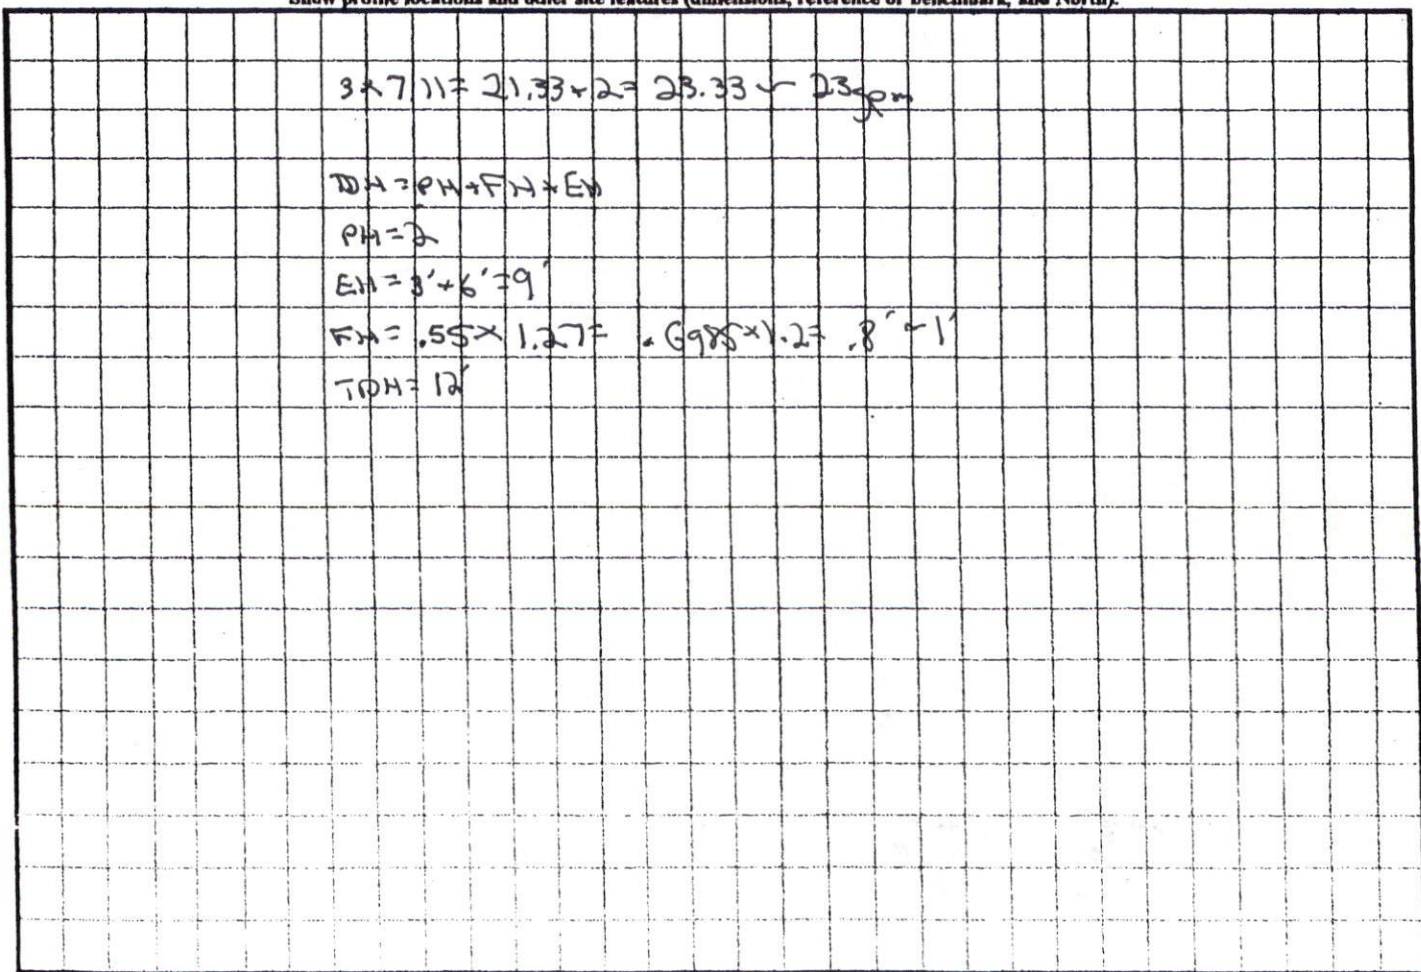 Show profile locations and other site features (dimensions, reference or benchmark, and North).
3 x 7.11 = 21.33 + 2 = 23.33 ~ 23gpm
TDH = PH + FH + EH
PH = 2
EH = 3' + 6' = 9'
FH = .55 x 1.27 = .6985 x 1.2 = .8' ~ 1'
TDH = 12'